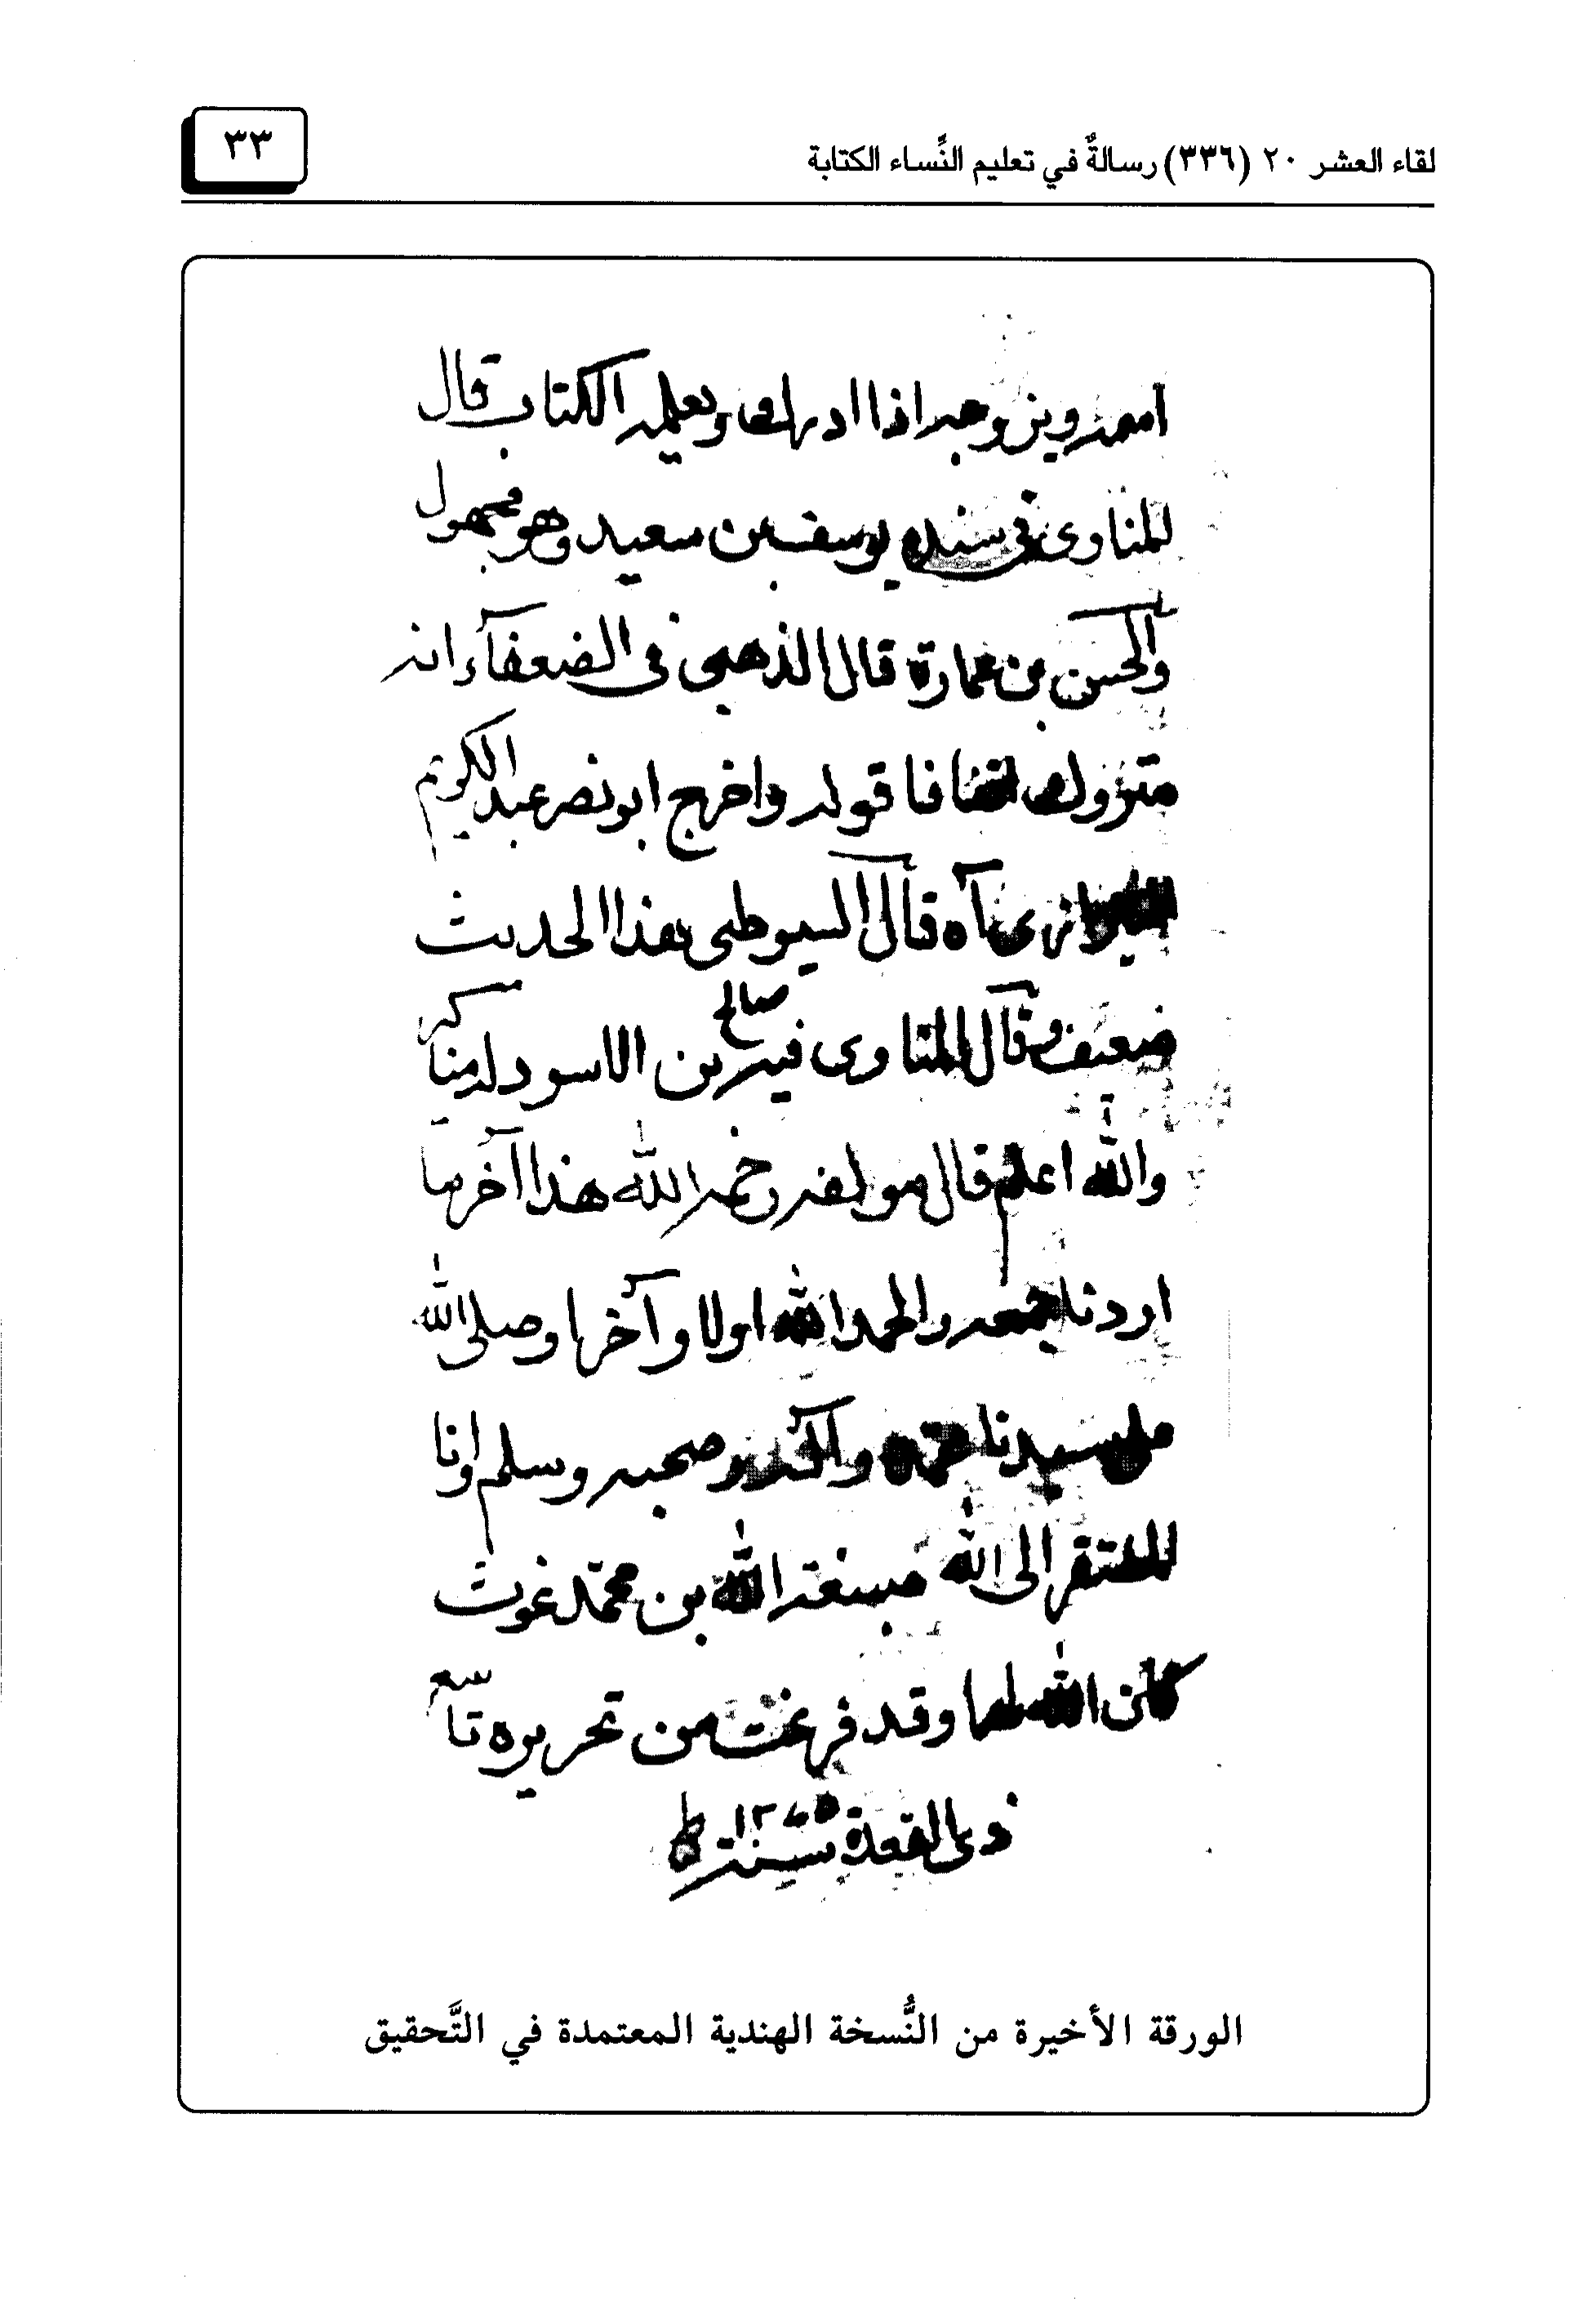 لقاء العشر ٢٠ (٣٣٦) رسالةٌ في تعليم النِّساء الكتابة
٣٣
ويزوجه اذا ادرك ويعلمه الكتاب قال
المناوى فى سنده يوسف بن سعيد وهو مجهول
والحسن بن عمارة قال الذهبى فى الضعفآء انه
متروك قوله واخرج ابو نصر عبد الكريم
الشيرازى قال السيوطى هذا الحديث
ضعيف وقال المناوى فيه صالح بن الاسود له مناكير
والله اعلم قال مولفه رحمه الله هذا آخر ما
اردنا جمعه والحمد الله اولا وآخرا وصلى الله
على سيدنا محمد وآله وصحبه وسلم وانا
المفتقر الى الله صبغة الله بن محمّد غوث
كان الله لهما وقد فرغت من تحريره تاسع
ذى القعدة سنة
الورقة الأخيرة من النُّسخة الهندية المعتمدة في التَّحقيق